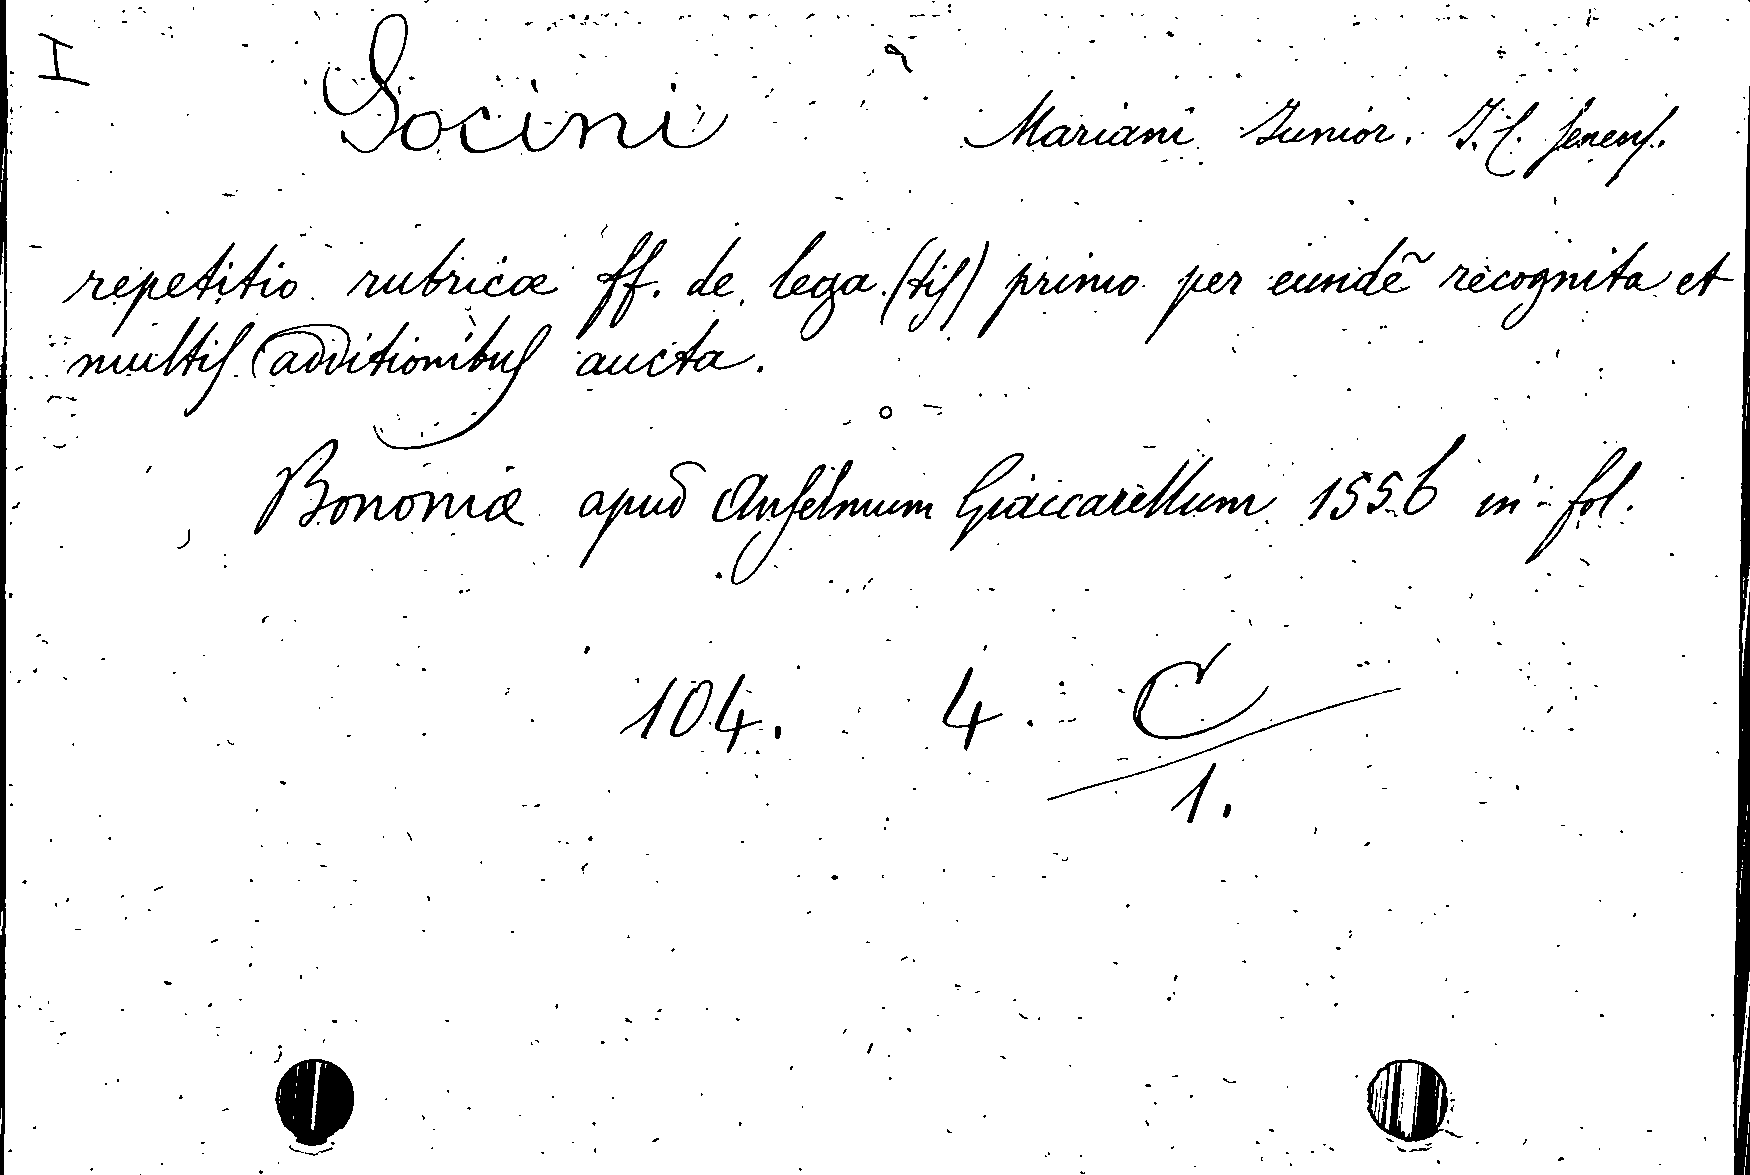 I
Socini Mariani Junior. J. C. senens.
repetitio rubricæ ff. de lega.(tis) primo per eundẽ recognita et
multis additionibus aucta.
Bononiæ apud Anselmum Giaccarellum 1556 in fol.
104. 4. C
1.